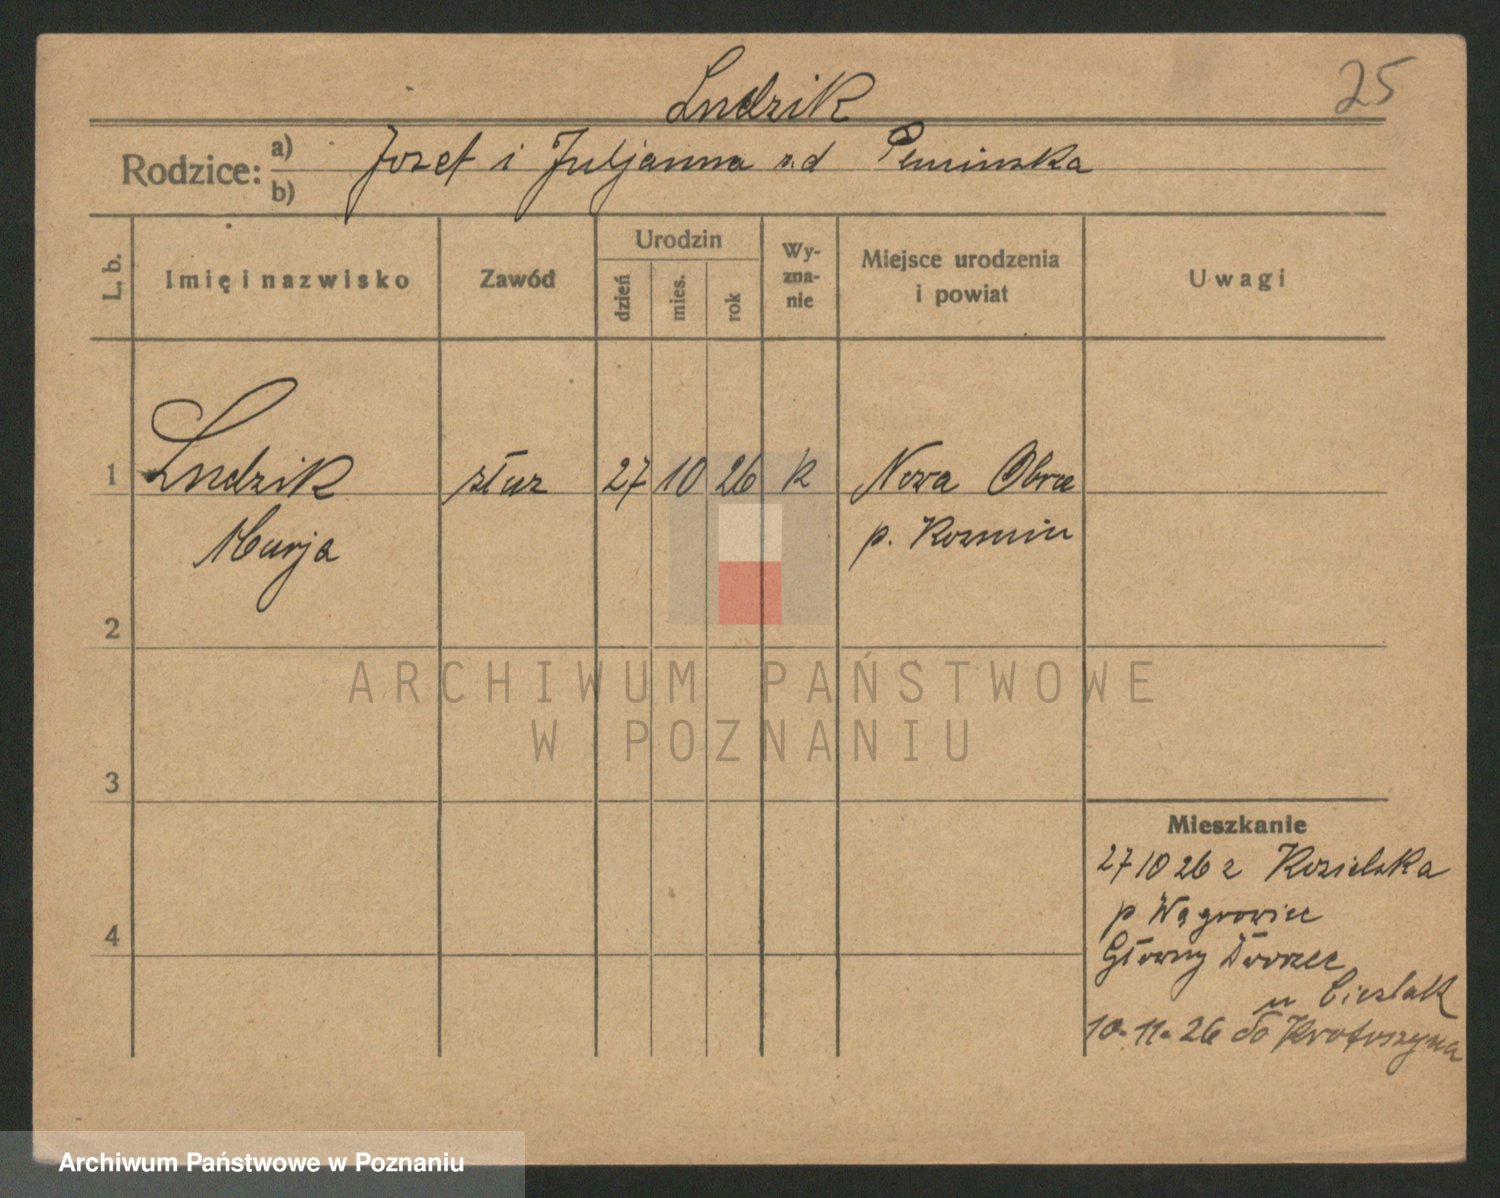 25
Ludzik
Rodzice: a) b) Jozef i Juljanna z.d
L. b.
Imię i nazwisko
Zawód
Urodzin
dzień
mies.
rok
Wy-
zna-
nie
Miejsce urodzenia
i powiat
Uwagi
1 Ludzik służ 27 10 26 k Nowa Obra
Marja p. Kozmin
2
3
4
Mieszkanie
27 10 26 z Kozielska
p Wągrowiec
Główny Dworzec
u Cieslak
10-11-26 do Krotoszyna
ARCHIWUM PAŃSTWOWE
W POZNANIU
Archiwum Państwowe w Poznaniu